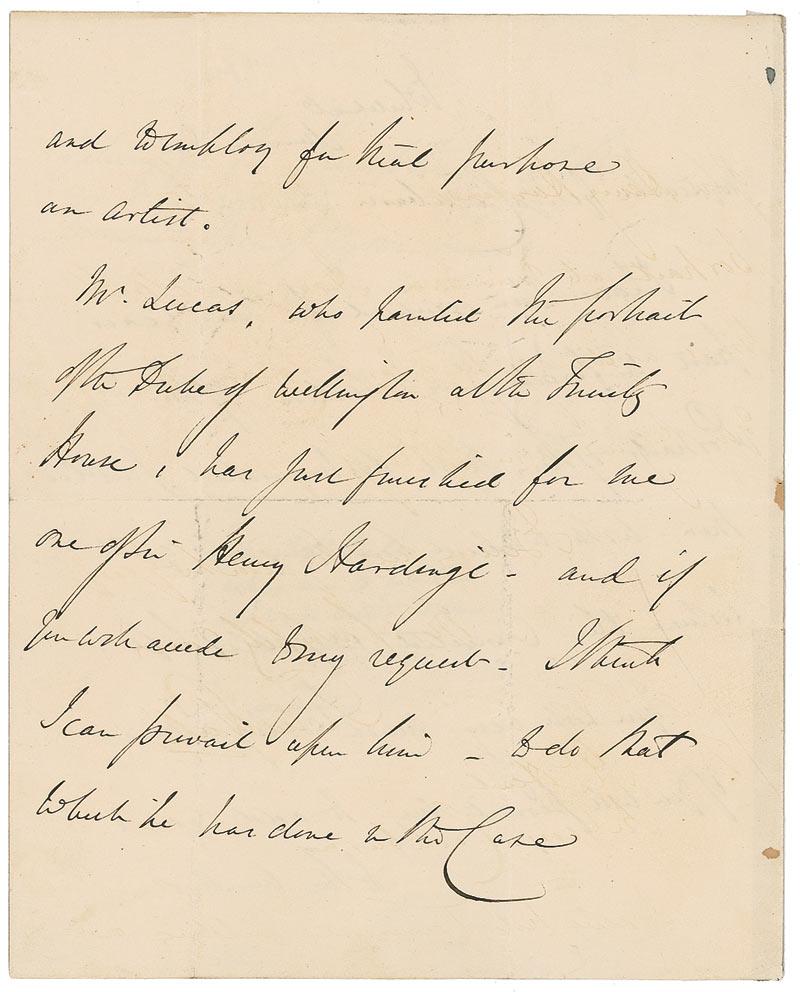 and to employ for that purpose
an artist.
Mr. Lucas, who painted the portrait
of the Duke of Wellington at the Trinity
House, has just finished for me
one of Sir Henry Hardinge - and if
you will accede to my request - I think
I can prevail upon him - to do that
which he has done in the Case